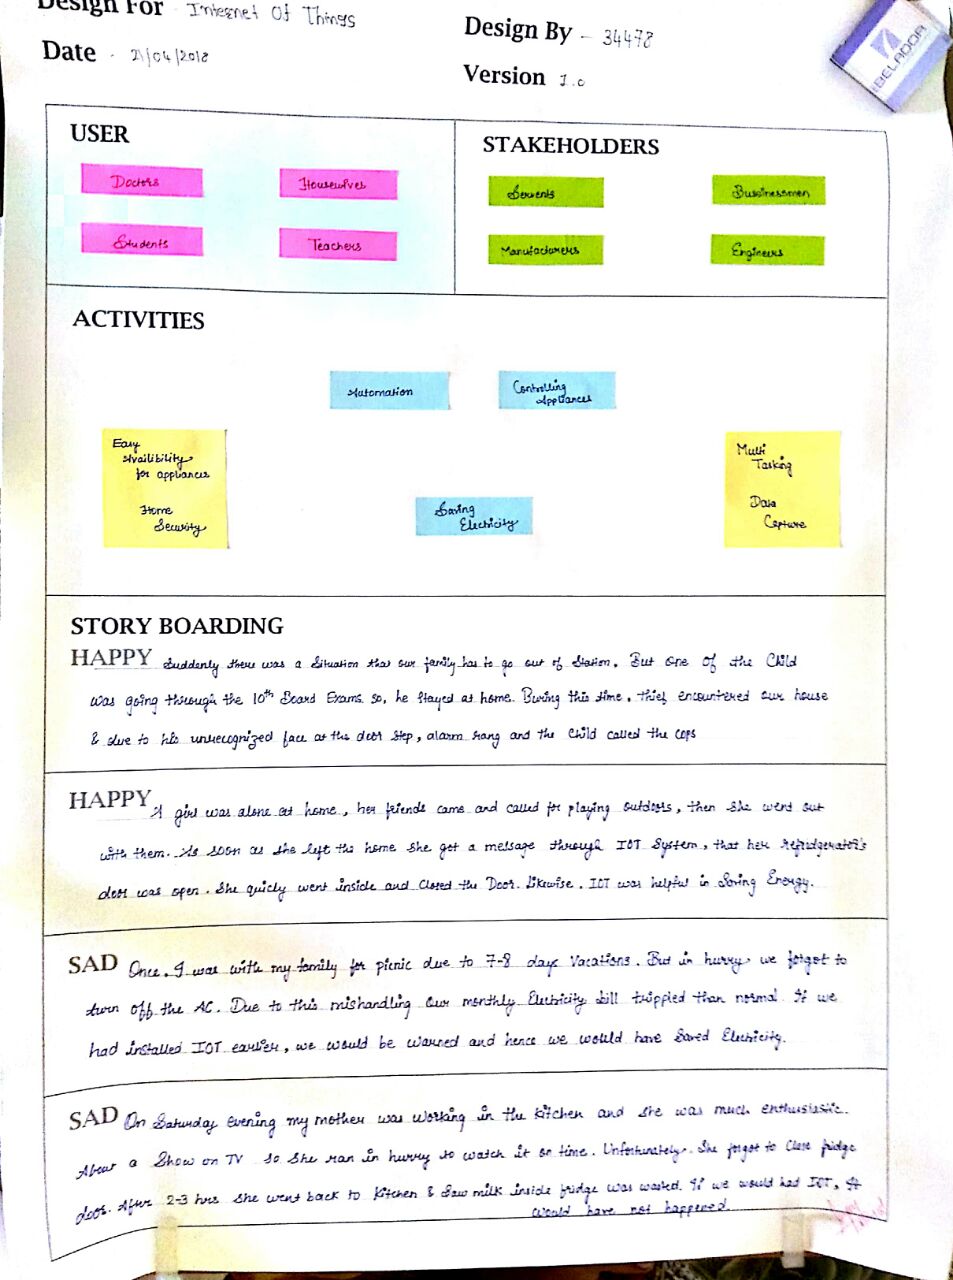 Design For - Internet Of Things
Design By - 34478
Date - 21/04/2018
Version 1.0
BELADOR
USER
Doctors
Housewives
Students
Teachers
STAKEHOLDERS
Servents
Bussinessmen
Manufacturers
Engineers
ACTIVITIES
Automation
Controlling
Appliances
Easy
Availibility
for appliances
Home
Security
Saving
Electricity
Multi
Tasking
Data
Capture
STORY BOARDING
HAPPY Suddenly there was a Situation that our family has to go out of Station. But one of the Child
was going through the 10th Board Exams so, he stayed at home. During this time, thief encountered our house
& due to his unrecognized face at the door step, alarm rang and the Child called the cops
HAPPY A girl was alone at home, her friends came and called for playing outdoors, then she went out
with them. As soon as she left the home she got a message through IOT System, that her Refridgerator's
door was open. She quicly went inside and closed the Door. Likewise, IOT was helpful in Saving Energy.
SAD Once, I was with my family for picnic due to 7-8 days Vacations. But in hurry we forgot to
turn off the AC. Due to this mishandling our monthly Electricity bill trippled than normal. If we
had installed IOT earlier, we would be warned and hence we would have Saved Electricity.
SAD On Saturday evening my mother was working in the kitchen and she was much enthusiastic
About a Show on TV so she ran in hurry to watch it on time. Unfortunately, She forgot to close fridge
door. After 2-3 hrs she went back to kitchen & Saw milk inside fridge was wasted. If we would had IOT, it
would have not happened.